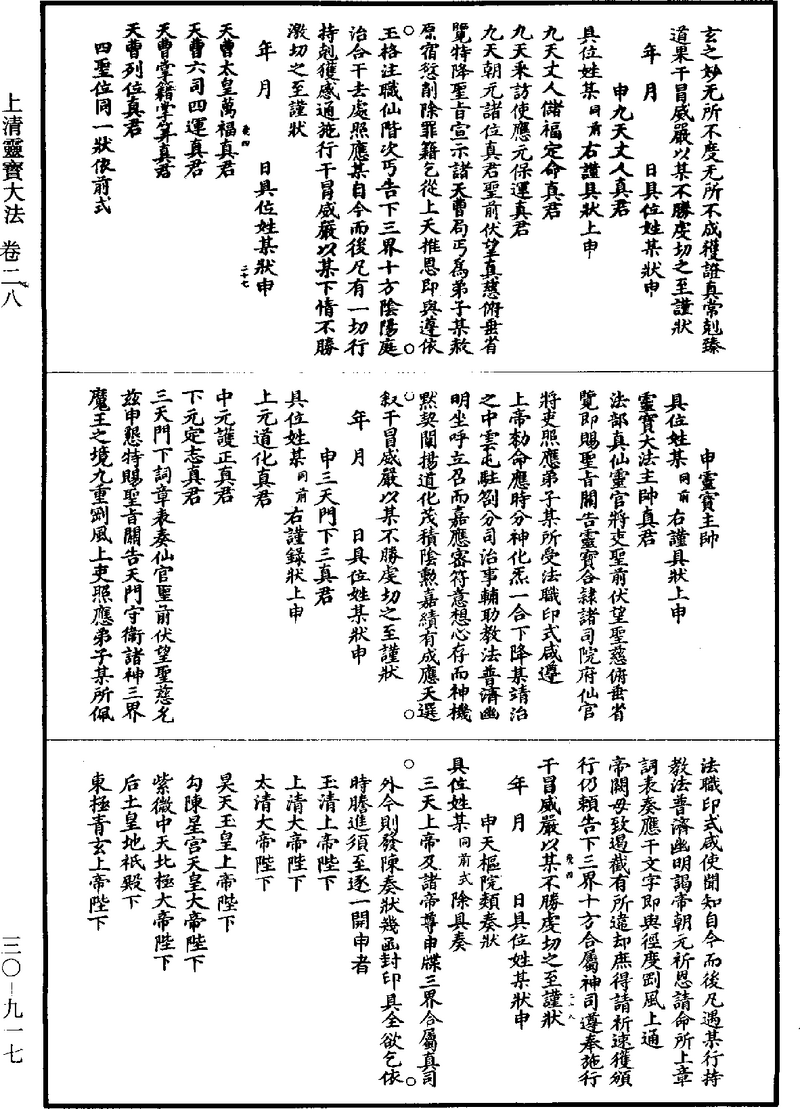 玄之妙无所不度无所不成獲證真常剋臻
道果干冒威嚴以某不勝虔切之至謹狀
年　月　　日具位姓某狀申
申九天丈人真君
具位姓某同前右謹具狀上申
九天丈人儲福定命真君
九天采訪使應元保運真君
九天朝元諸位真君聖前伏望真慈俯垂省
覽特降聖旨宣示諸天曹局丐為弟子某赦
原宿愆削除罪籍乞從上天推恩即與遵依
玉格注職仙階次丐告下三界十方陰陽庭
治合干去處照應某自今而後凡有一切行
持剋獲感通施行干冒威嚴以某下情不勝
激切之至謹狀
年　月　　日具位姓某狀申
天曹太皇萬福真君
天曹六司四運真君
天曹掌籍掌筭真君
天曹列位真君
四聖位同一狀依前式
申靈寶主帥
具位姓某同前右謹具狀上申
靈寶大法主帥真君
法部真仙靈官將吏聖前伏望聖慈俯垂省
覽即賜聖旨關告靈寶合隸諸司院府仙官
將吏照應弟子某所受法職印式咸遵
上帝勑命應時分神化炁一合下降某靖治
之中雲屯駐劄分司治事輔助教法普濟幽
明坐呼立召而嘉應審符意想心存而神機
默契闡揚道化茂積陰勲嘉績有成應天選
叙干冒威嚴以某不勝虔切之至謹狀
年　月　　日具位姓某狀申
申三天門下三真君
具位姓某同前右謹錄狀上申
上元道化真君
中元護正真君
下元定志真君
三天門下詞章表奏仙官聖前伏望聖慈允
茲申懇特賜聖旨關告天門守衛諸神三界
魔王之境九重劉風上吏照應弟子某所佩
法職印式咸使聞知自今而後凡遇某行持
教法普濟幽明謁帝朝元祈恩請命所上章
詞表奏應干文字即與徑度劉風上通
帝闕毋致遏截有所違却庶得請祈速獲頒
行仍賴告下三界十方合屬神司遵奉施行
干冒威嚴以某不勝虔切之至謹狀
年　月　　日具位姓某狀申
申天樞院類奏狀
具位姓某同前式除具奏
三天上帝及諸帝尊申牒三界合屬真司
外今則發陳奏狀幾函封印具全欲乞依
時騰進須至逐一開申者
玉清上帝陛下
上清大帝陛下
太清大帝陛下
昊天玉皇上帝陛下
勾陳星宮天皇大帝陛下
紫微中天北極大帝陛下
后土皇地祇殿下
東極青玄上帝陛下
上清靈寶大法　卷二八
三〇－九一七